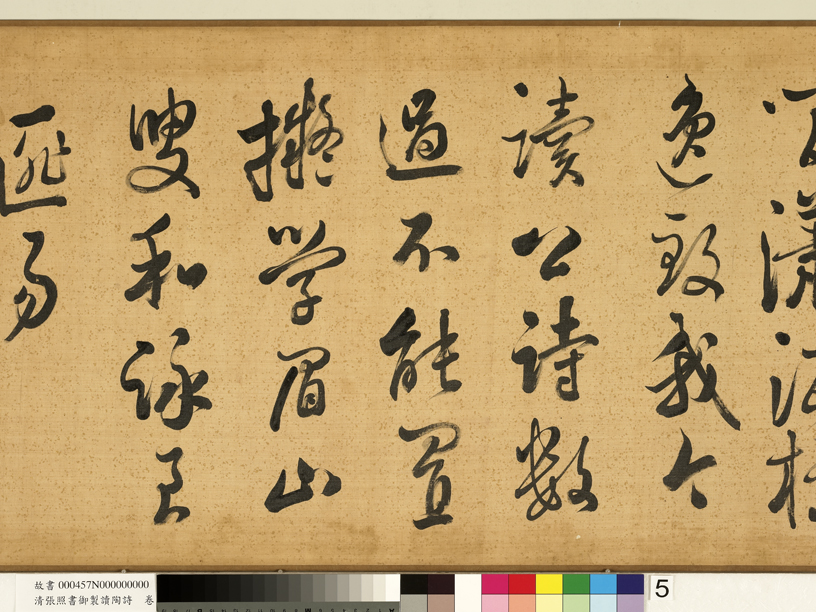 瀟洒
逸致我今
讀公詩數
過不能置
擬學眉山
叟和詠良
匪易
故書 000457N000000000
清張照書御製讀陶詩 卷
5